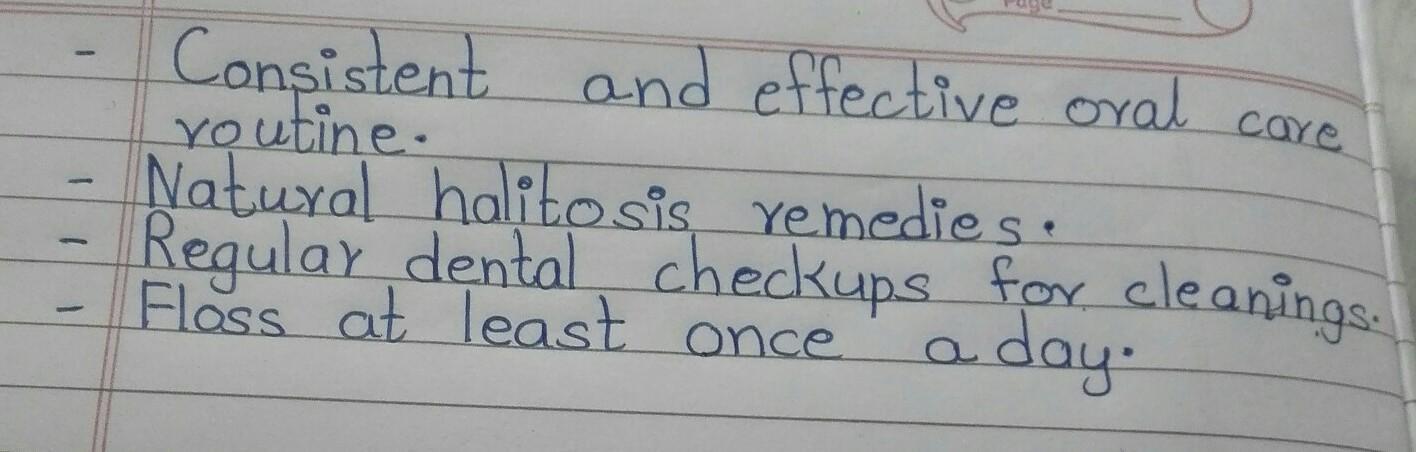 Page
- Consistent and effective oral care
routine.
- Natural halitosis remedies.
- Regular dental checkups for cleanings.
- Floss at least once a day.